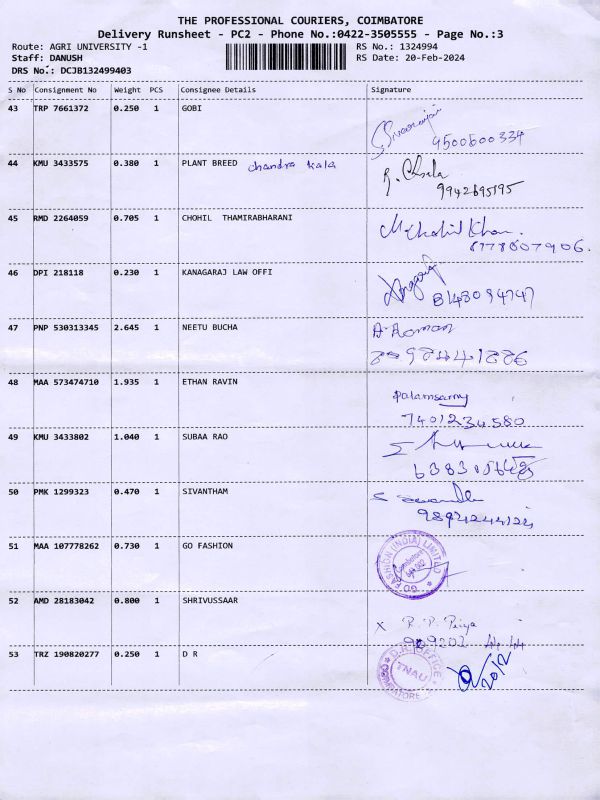 THE PROFESSIONAL COURIERS, COIMBATORE
Delivery Runsheet - PC2 - Phone No.:0422-3505555 - Page No.:3
Route: AGRI UNIVERSITY -1 RS No.: 1324994
Staff: DANUSH RS Date: 20-Feb-2024
DRS No.: DCJB132499403
S No Consignment No Weight PCS Consignee Details Signature
43 TRP 7661372 0.250 1 GOBI
9500600334
44 KMU 3433575 0.380 1 PLANT BREED chandra kala
9942695195
45 RMD 2264059 0.705 1 CHOHIL THAMIRABHARANI
8778807906.
46 DPI 218118 0.230 1 KANAGARAJ LAW OFFI
8148094747
47 PNP 530313345 2.645 1 NEETU BUCHA
48 MAA 573474710 1.935 1 ETHAN RAVIN
Palamsamy
7401234580
49 KMU 3433802 1.040 1 SUBAA RAO
50 PMK 1299323 0.470 1 SIVANTHAM
9894244124
51 MAA 107778262 0.730 1 GO FASHION
GO FASHION (INDIA) LIMITED
52 AMD 28183042 0.800 1 SHRIVUSSAAR
X R. P. Priya
53 TRZ 190820277 0.250 1 D R
D.R. OFFICE
TNAU
COIMBATORE
20/2